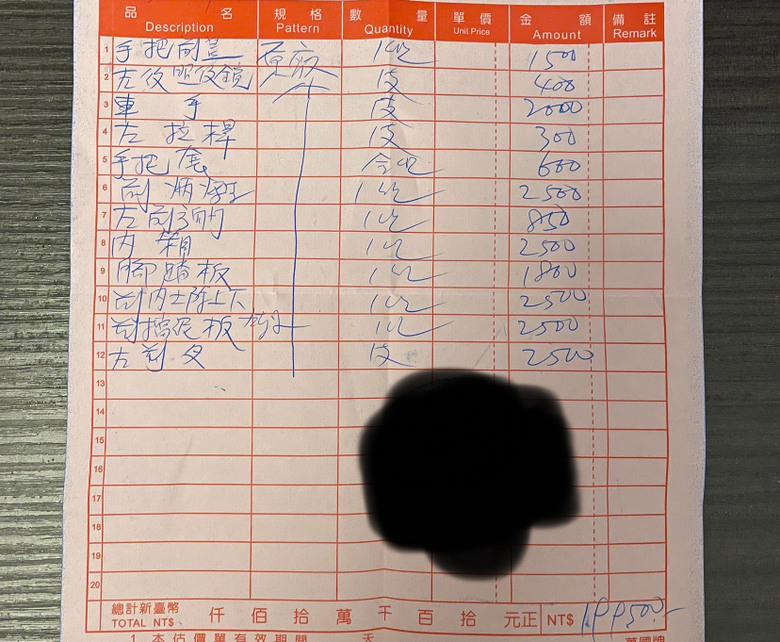 品名 規格 數量 單價 金額 備註
Description Pattern Quantity Unit Price Amount Remark
1 手把前蓋 原廠 1 1500
2 左後照後鏡 支 400
3 車手 支 2000
4 左拉桿 支 300
5 手把套 600
6 2500
7 左 850
8 內箱 2500
9 腳踏板 1800
10 前內土除上下 2500
11 前擋泥板 2500
12 左前叉 支 2500
13
14
15
16
17
18
19
20
總計新臺幣 仟佰拾萬千百拾元正 NT$
TOTAL NT$
1. 本估價單有效期間 天